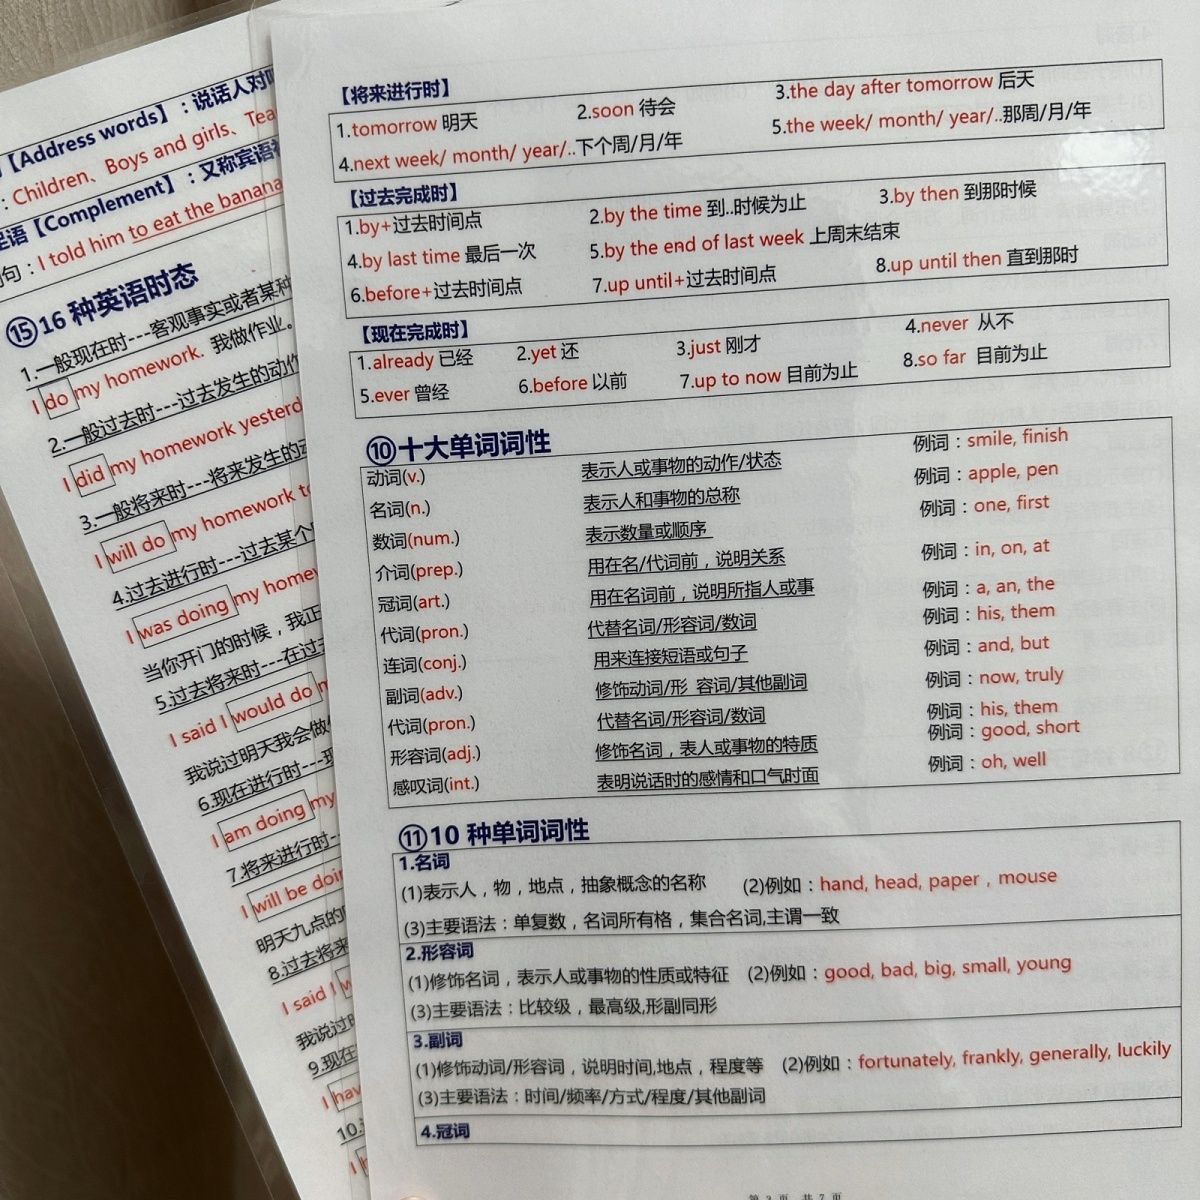 【Address words】：说话人对
：Children、Boys and girls、Tea
【Complement】：又称宾语
句：I told him to eat the banana
⑮16 种英语时态
1.一般现在时---客观事实或者某种
I do my homework. 我做作业。
2.一般过去时---过去发生的动作
I did my homework yesterd
3.一般将来时---将来发生的动
I will do my homework to
4.过去进行时---过去某个
I was doing my homew
当你开门的时候，我正
5.过去将来时---在过去
I said I would do m
我说过明天我会做
6.现在进行时---现
I am doing my
7.将来进行时--
I will be doin
明天九点的
8.过去将来
I said I w
我说过
9.现在
I hav
10.
I h
【将来进行时】
1.tomorrow 明天 2.soon 待会 3.the day after tomorrow 后天
4.next week/ month/ year/..下个周/月/年 5.the week/ month/ year/..那周/月/年
【过去完成时】
1.by+过去时间点 2.by the time 到..时候为止 3.by then 到那时候
4.by last time 最后一次 5.by the end of last week 上周末结束
6.before+过去时间点 7.up until+过去时间点 8.up until then 直到那时
【现在完成时】
1.already 已经 2.yet 还 3.just 刚才 4.never 从不
5.ever 曾经 6.before 以前 7.up to now 目前为止 8.so far 目前为止
⑩十大单词词性
动词(v.) 表示人或事物的动作/状态 例词：smile, finish
名词(n.) 表示人和事物的总称 例词：apple, pen
数词(num.) 表示数量或顺序 例词：one, first
介词(prep.) 用在名/代词前，说明关系 例词：in, on, at
冠词(art.) 用在名词前，说明所指人或事 例词：a, an, the
代词(pron.) 代替名词/形容词/数词 例词：his, them
连词(conj.) 用来连接短语或句子 例词：and, but
副词(adv.) 修饰动词/形 容词/其他副词 例词：now, truly
代词(pron.) 代替名词/形容词/数词 例词：his, them
形容词(adj.) 修饰名词，表人或事物的特质 例词：good, short
感叹词(int.) 表明说话时的感情和口气时面 例词：oh, well
⑪10 种单词词性
1.名词
(1)表示人，物，地点，抽象概念的名称 (2)例如：hand, head, paper，mouse
(3)主要语法：单复数，名词所有格，集合名词,主谓一致
2.形容词
(1)修饰名词，表示人或事物的性质或特征 (2)例如：good, bad, big, small, young
(3)主要语法：比较级，最高级,形副同形
3.副词
(1)修饰动词/形容词，说明时间,地点，程度等 (2)例如：fortunately, frankly, generally, luckily
(3)主要语法：时间/频率/方式/程度/其他副词
4.冠词
第 3 页 共 7 页